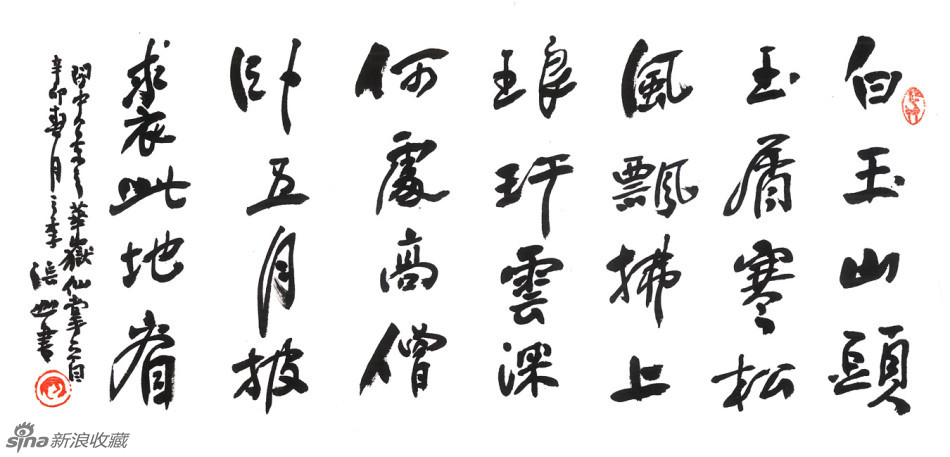 白玉山頭
玉屑寒松
風飄拂上
琅玕雲深
何處高僧
臥五月披
裘此地看
華嶽仙掌
辛卯春月 書
sina新浪收藏